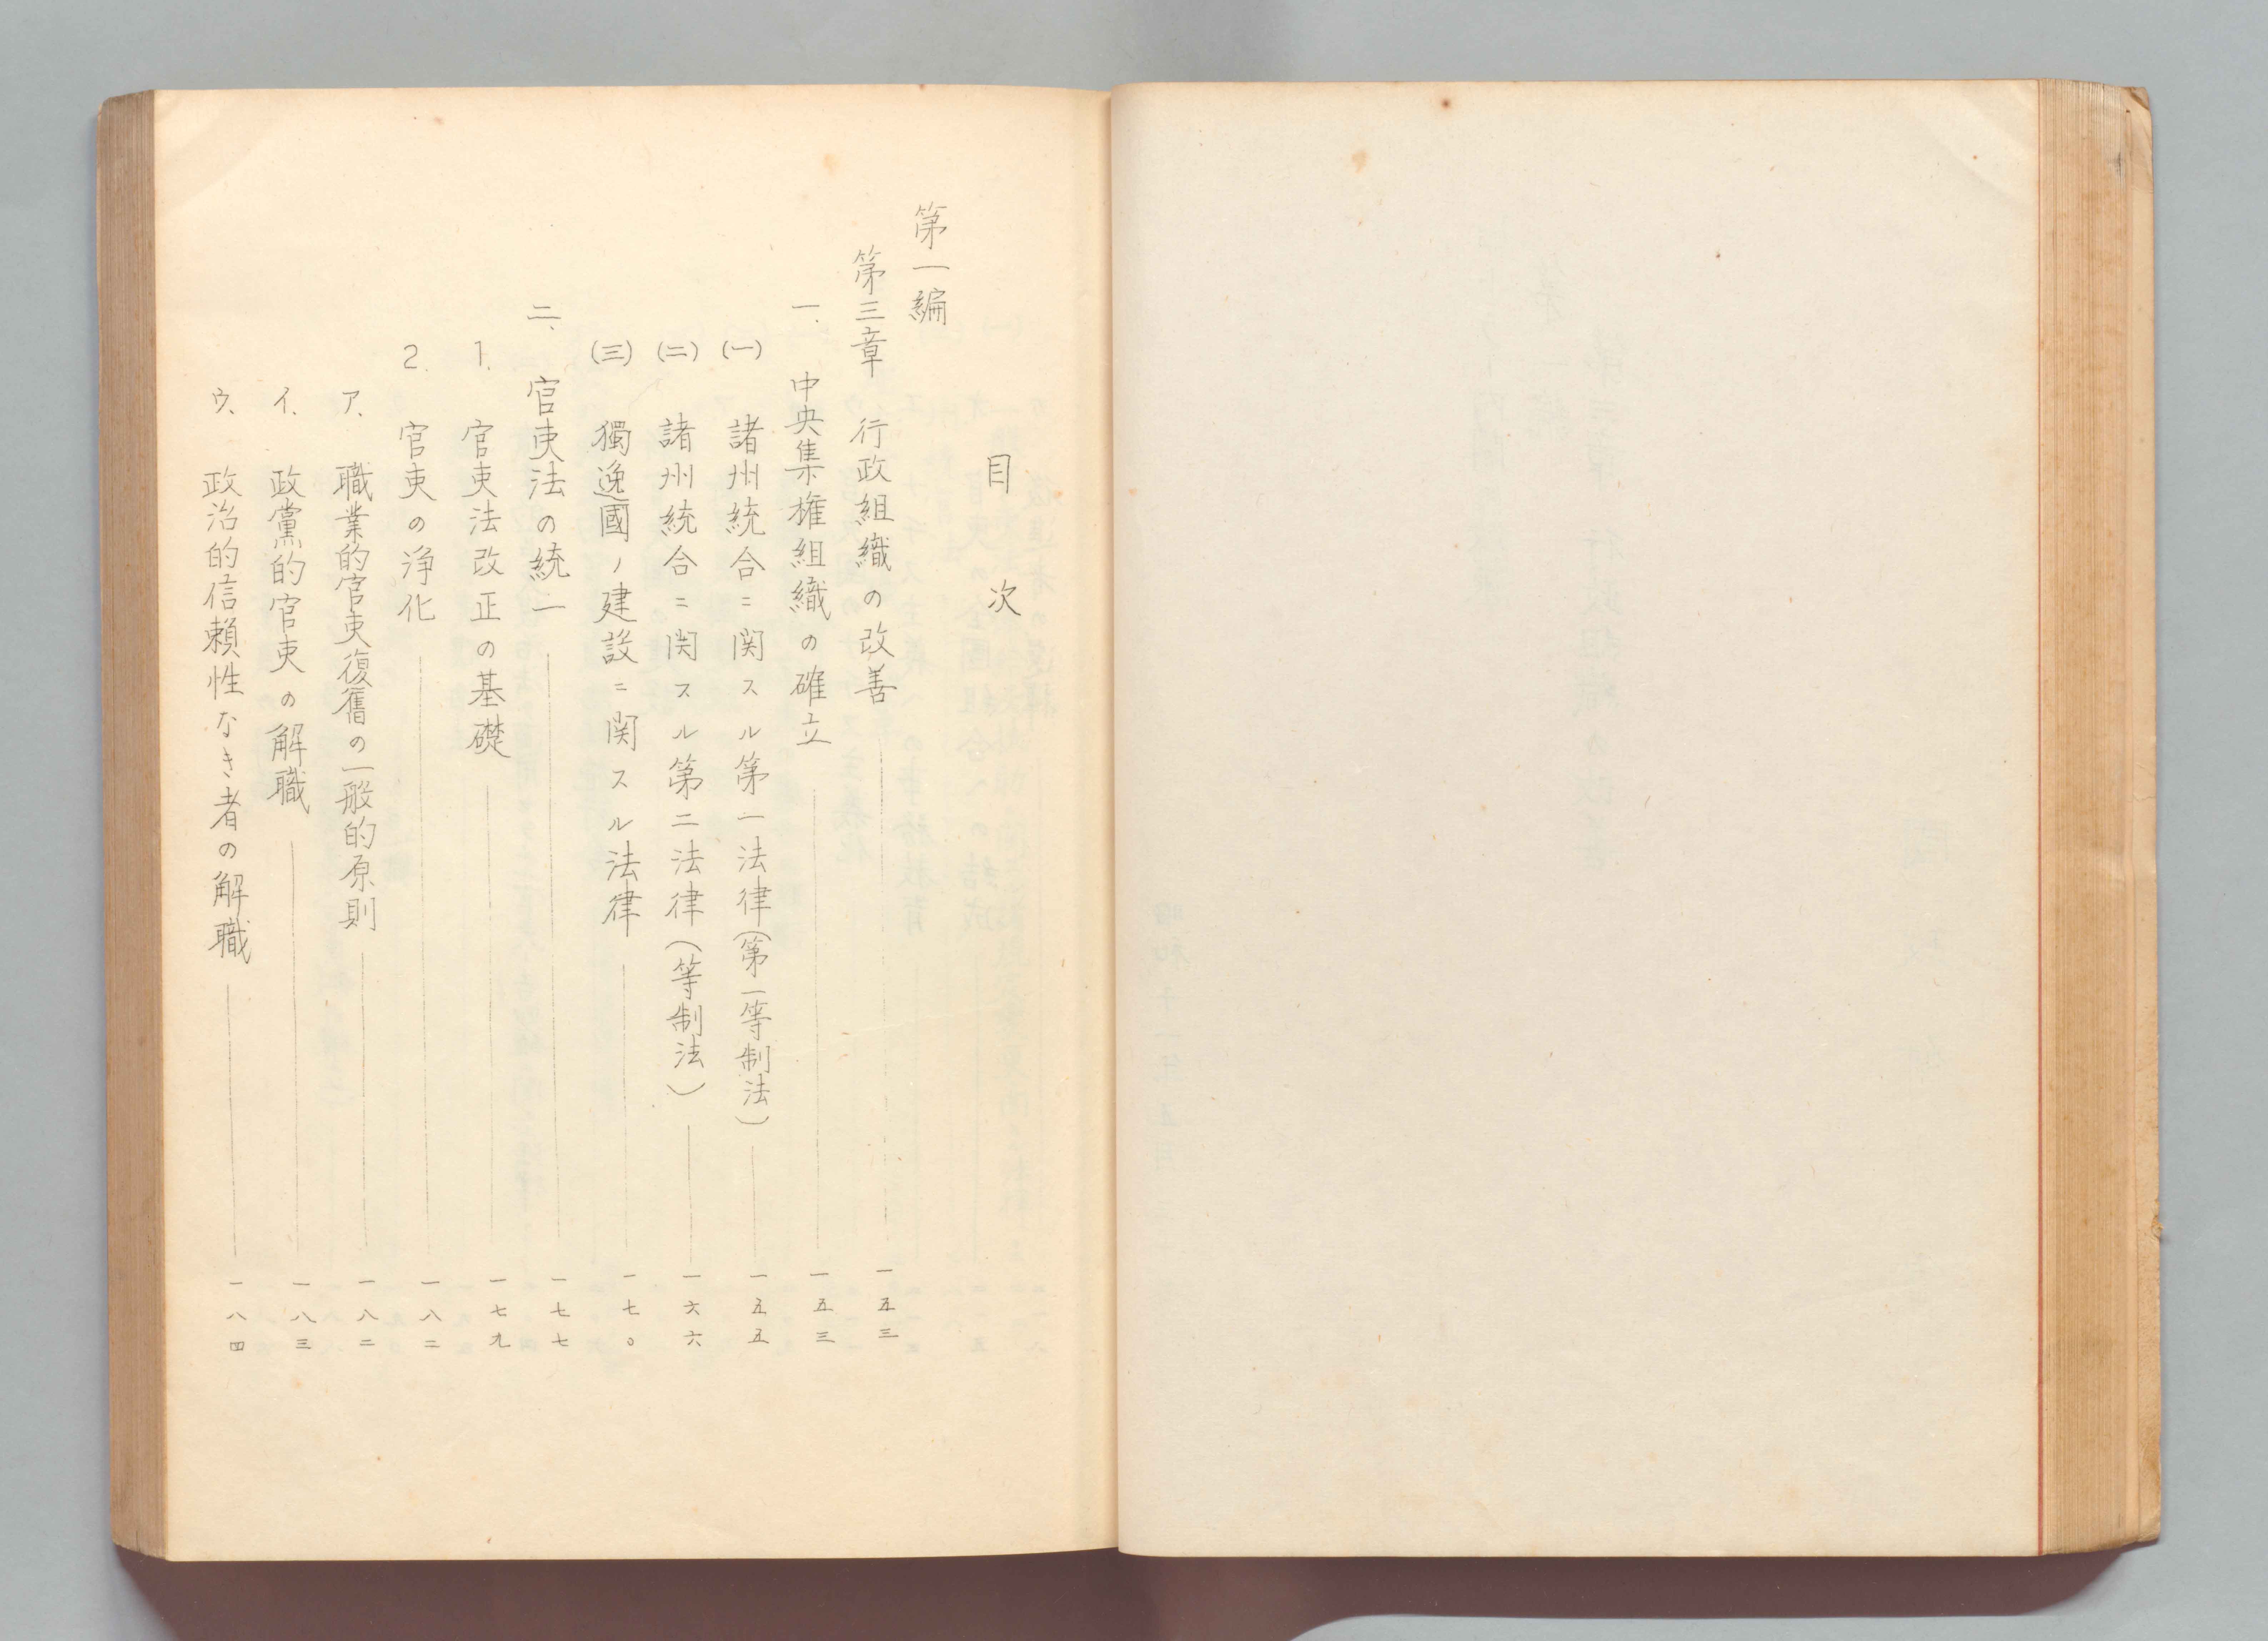 目次
第一編
第三章 行政組織の改善 一五三
一、中央集権組織の確立 一五三
(一) 諸州統合ニ関スル第一法律(第一等制法) 一五五
(二) 諸州統合ニ関スル第二法律(等制法) 一六六
(三) 獨逸國ノ建設ニ関スル法律 一七〇
二、官吏法の統一 一七七
1. 官吏法改正の基礎 一七九
2. 官吏の浄化 一八二
ア、職業的官吏復舊の一般的原則 一八二
イ、政黨的官吏の解職 一八三
ウ、政治的信頼性なき者の解職 一八四